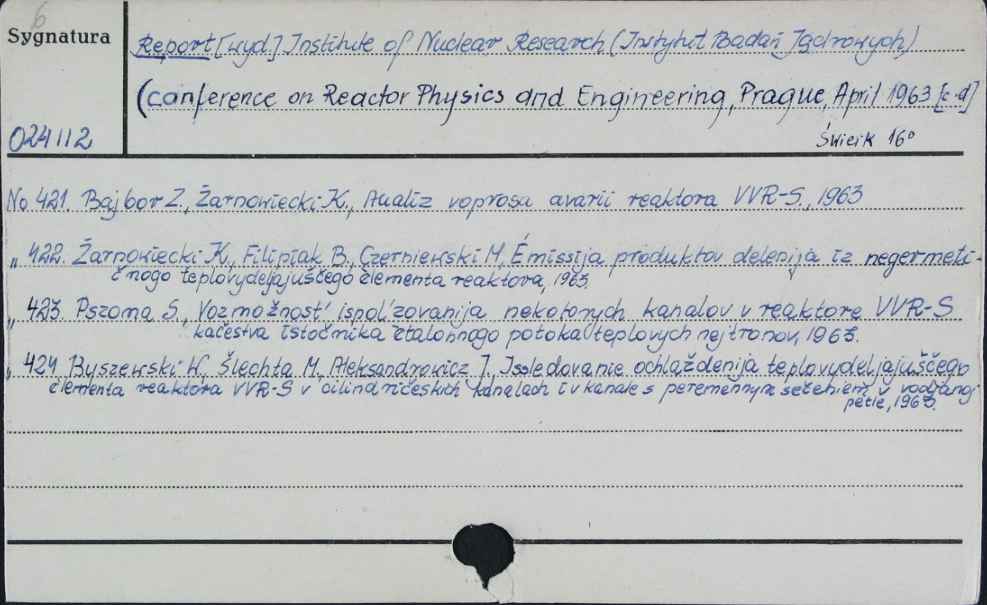 6
Sygnatura
Report [wyd.] Institute of Nuclear Research (Instytut Badań Jądrowych)
(conference on Reactor Physics and Engineering, Prague, April 1963 [c.d]
024112
Świerk 16°
No 421. Bajbor Z., Żarnowiecki K., Analiz voprosu avarii reaktora VVR-S., 1963
„ 422. Żarnowiecki K., Filipiak B., Czerniewski M., Émissija produktov delenija iz negermeti-
čnogo teplovydeljajuščego èlementa reaktora, 1963.
„ 423. Pszona S., Vozmožnost' ispol'zovanija nekotorych kanalov v reaktore VVR-S
kačestva istočnika etalonnogo potoka teplovych nejtronov, 1963.
„ 424. Byszewski W., Šlechta M., Aleksandrowicz J., Issledovanie ochlaždenija teplovydeljajuščego
èlementa reaktora VVR-S v cilindričeskich kanalach i v kanale s peremennym sečehiem v vodjanoj
petle, 1963.